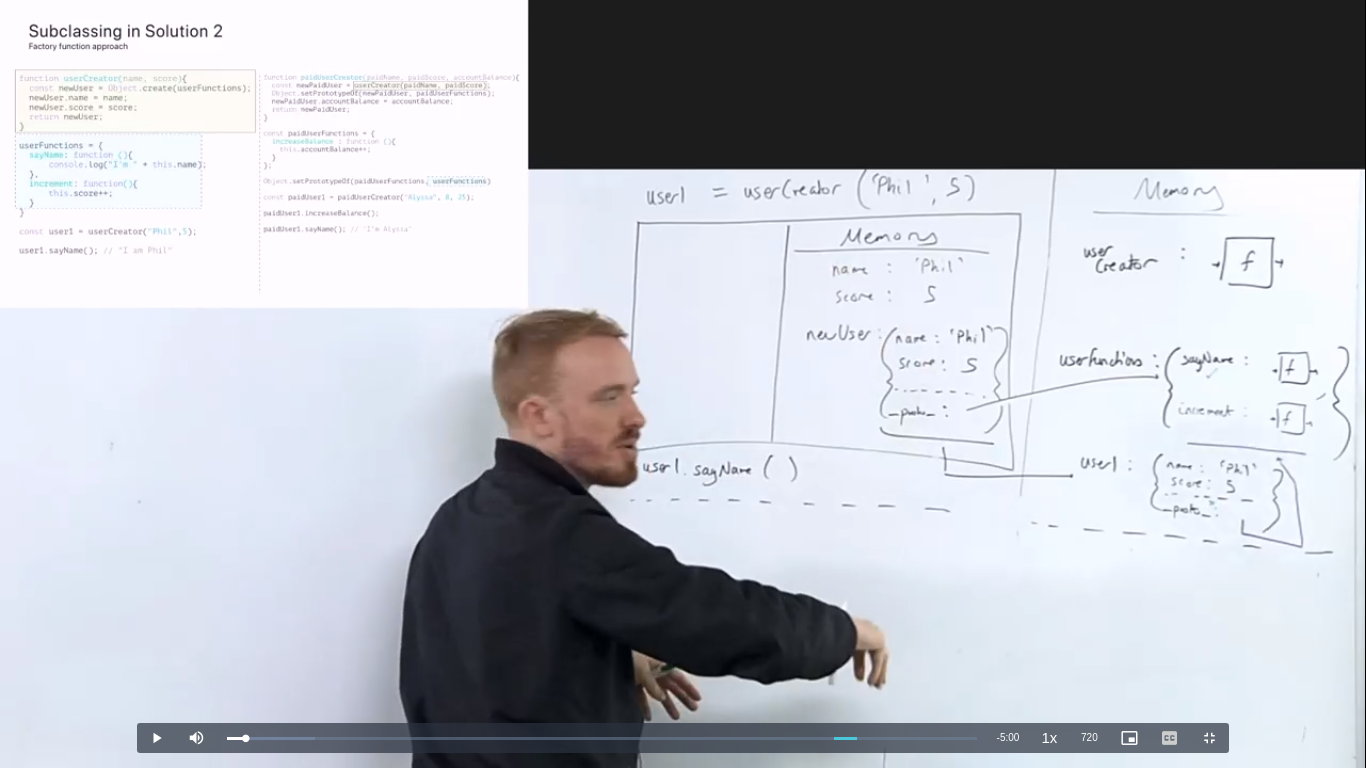 Subclassing in Solution 2
Factory function approach
function userCreator(name, score){
const newUser = Object.create(userFunctions);
newUser.name = name;
newUser.score = score;
return newUser;
}
userFunctions = {
sayName: function (){
console.log("I'm " + this.name);
},
increment: function(){
this.score++;
}
}
const user1 = userCreator("Phil",5);
user1.sayName(); // "I am Phil"
function paidUserCreator(paidName, paidScore, accountBalance){
const newPaidUser = userCreator(paidName, paidScore);
Object.setPrototypeOf(newPaidUser, paidUserFunctions);
newPaidUser.accountBalance = accountBalance;
return newPaidUser;
}
const paidUserFunctions = {
increaseBalance : function (){
this.accountBalance++;
}
};
Object.setPrototypeOf(paidUserFunctions, userFunctions)
const paidUser1 = paidUserCreator("Alyssa", 8, 25);
paidUser1.increaseBalance();
paidUser1.sayName(); // "I'm Alysia"
user1 = userCreator ('Phil', 5)
Memory
name : 'Phil'
score : 5
newUser : { name : 'Phil'
score : 5
_proto_ : }
user1.sayName ( )
Memory
user
Creator : f
userfunctions : { sayName : f
increment : f }
user1 : { name : 'Phil'
score : 5
_proto_ : }
-5:00
1x
720
CC